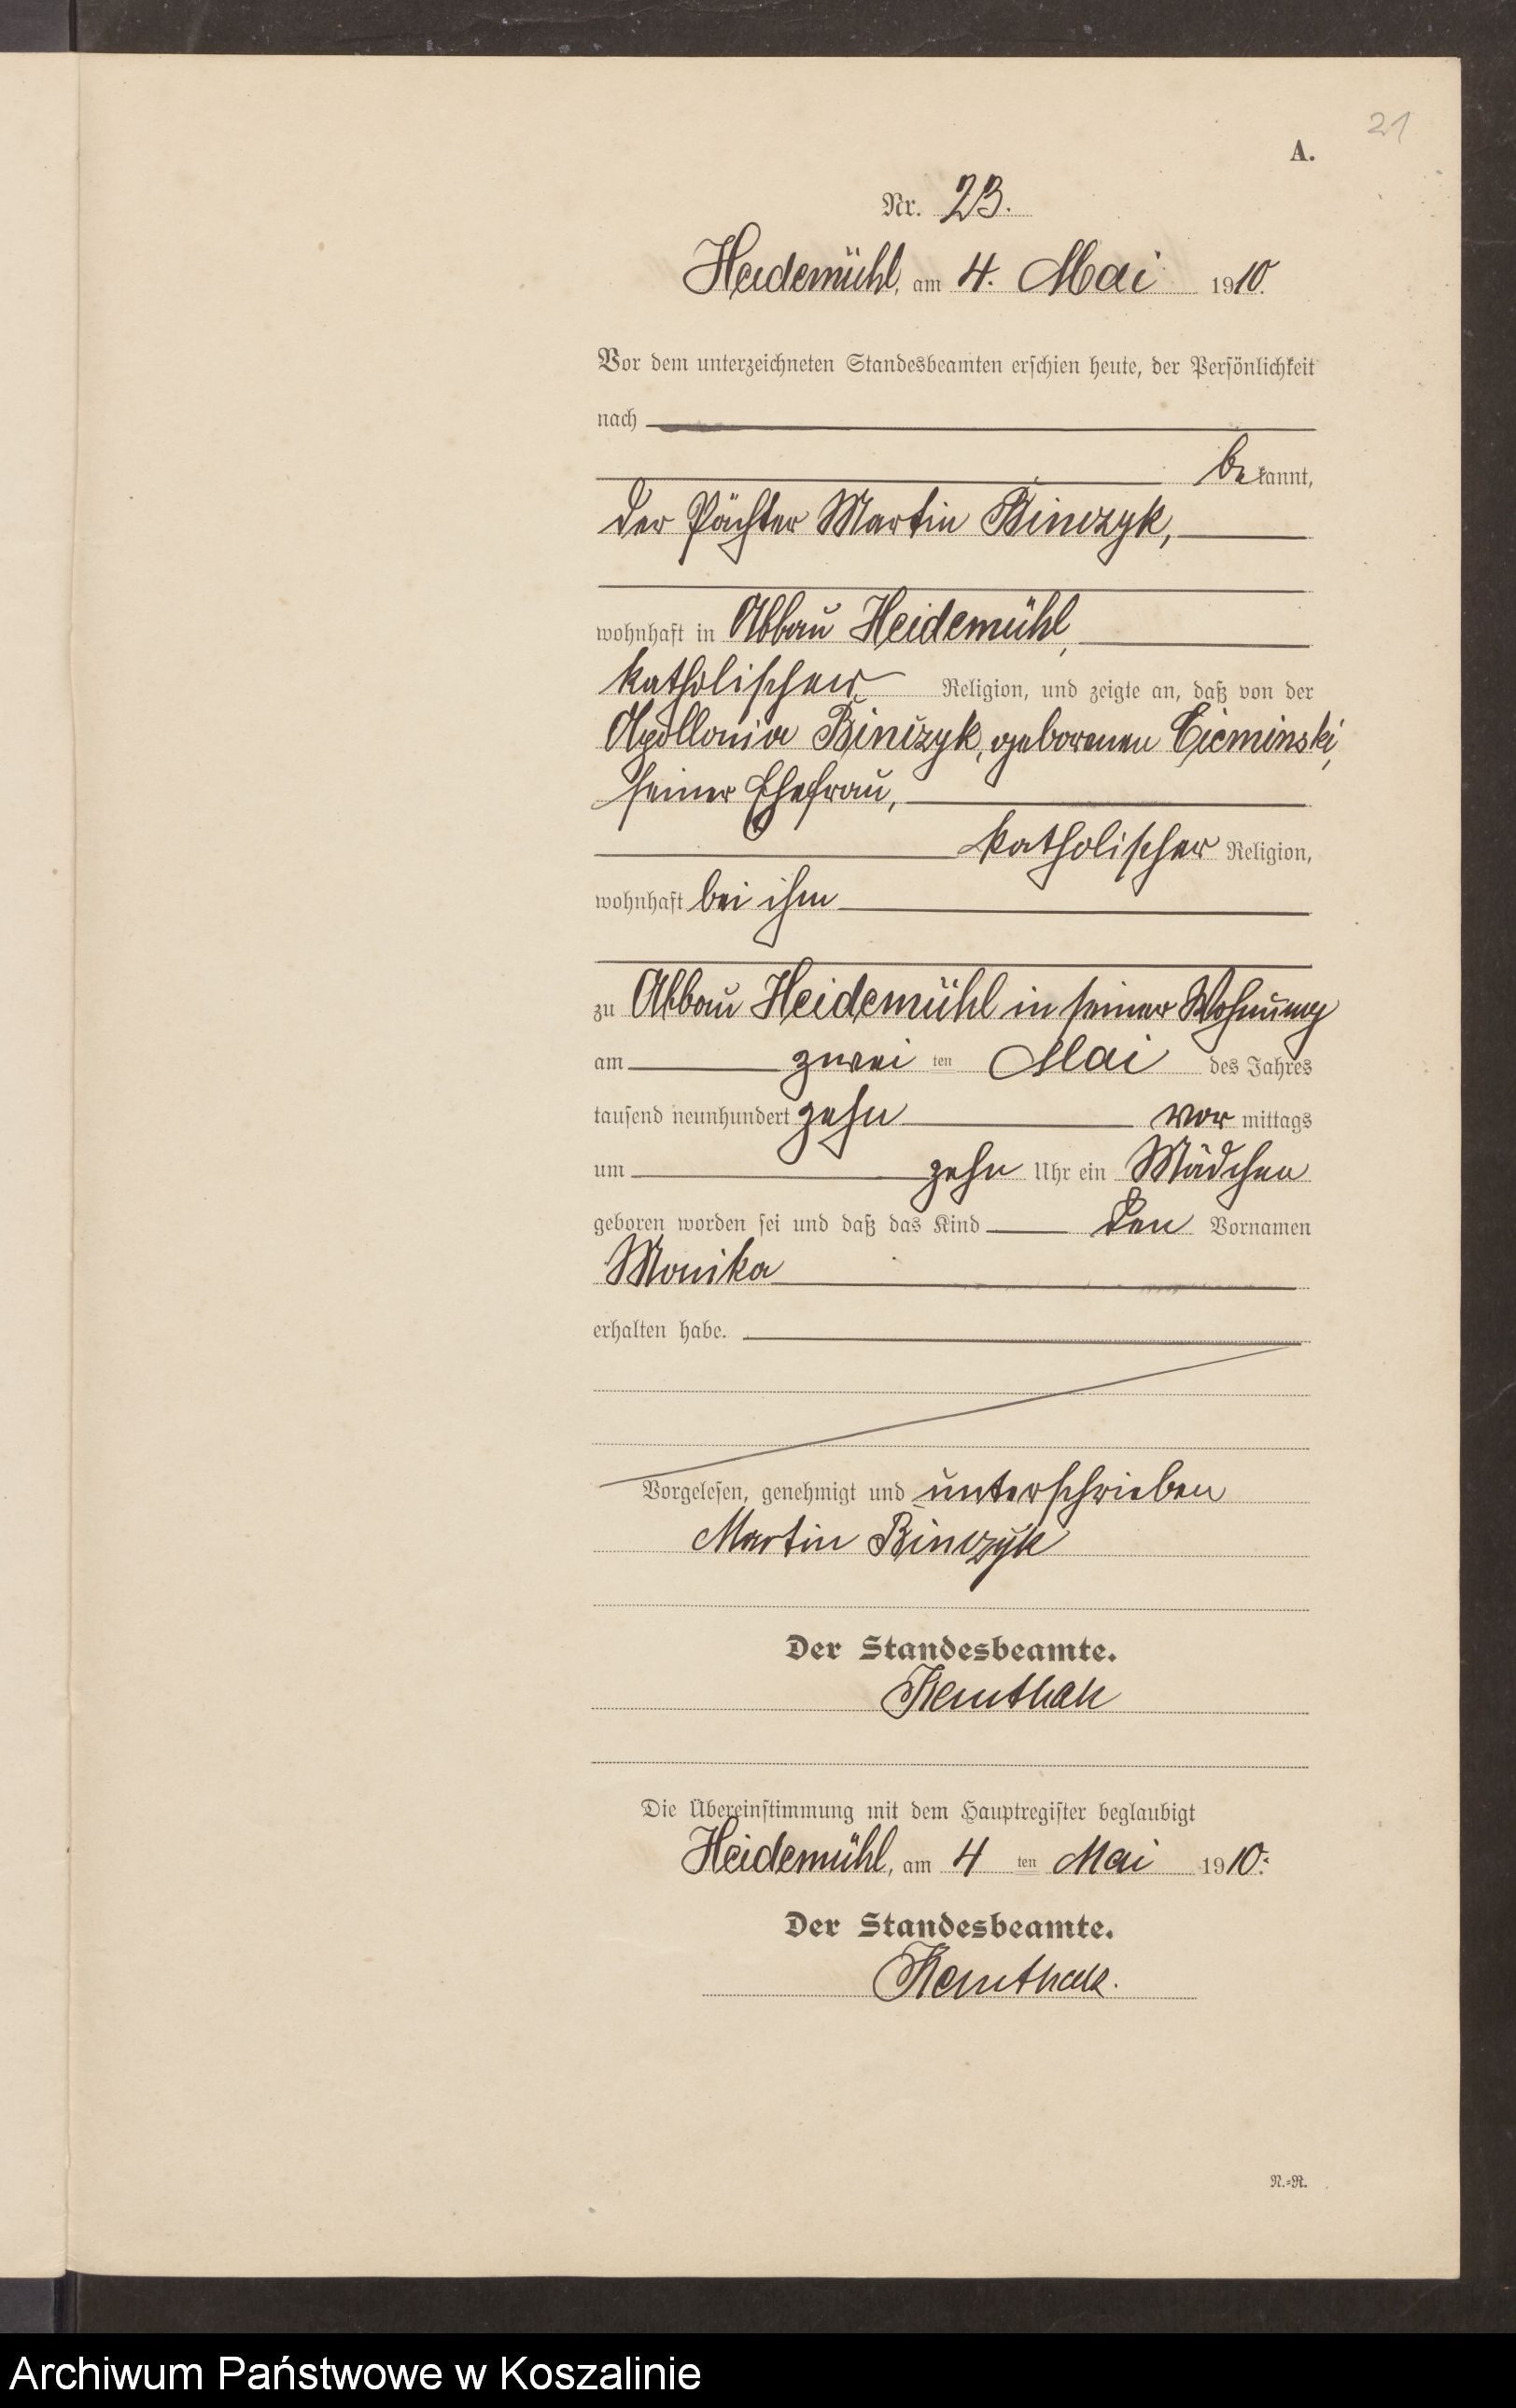 21
A.
Nr. 23.
Heidemühl, am 4. Mai 1910.
Vor dem unterzeichneten Standesbeamten erschien heute, der Persönlichkeit
nach
bekannt,
der Pächter Martin Binczyk,
wohnhaft in Abbau Heidemühl,
katholischer Religion, und zeigte an, daß von der
Apollonia Binczyk, geborenen Cieminski,
seiner Ehefrau,
katholischer Religion,
wohnhaft bei ihm
zu Abbau Heidemühl in seiner Wohnung
am zweiten Mai des Jahres
tausend neunhundert zehn vormittags
um zehn Uhr ein Mädchen
geboren worden sei und daß das Kind den Vornamen
Monika
erhalten habe.
Vorgelesen, genehmigt und unterschrieben
Martin Binczyk
Der Standesbeamte.
Die Übereinstimmung mit dem Hauptregister beglaubigt
Heidemühl, am 4ten Mai 1910.
Der Standesbeamte.
N.=R.
Archiwum Państwowe w Koszalinie